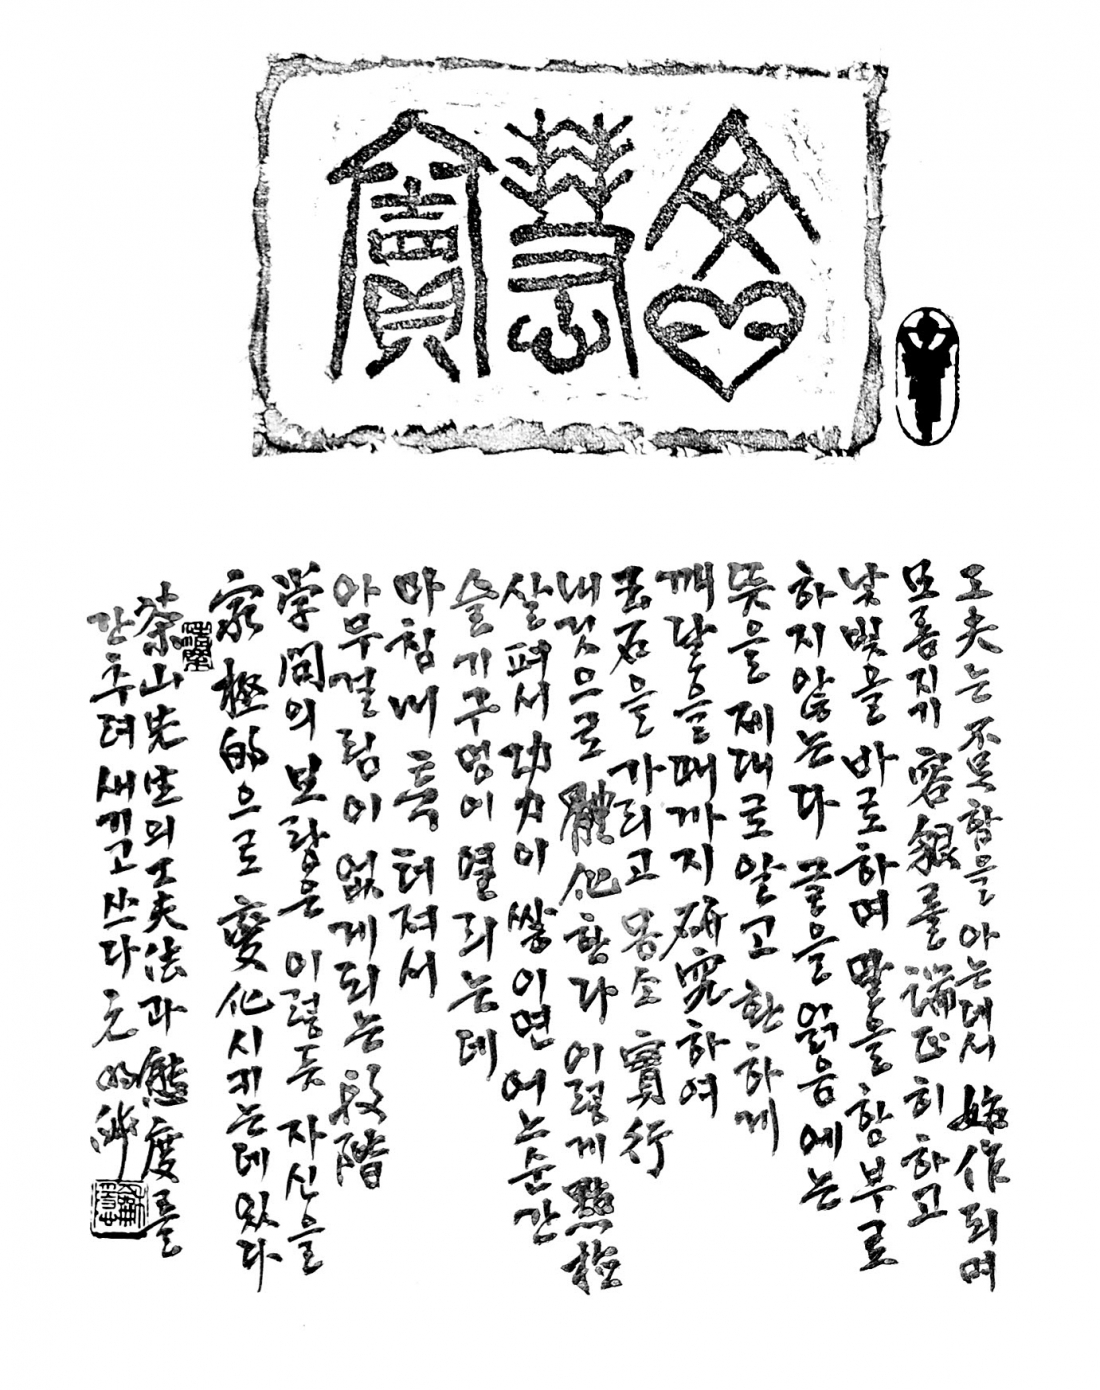 文心慧竇
工夫는 不足함을 아는데서 始作되며
모름지기 容貌를 端正히 하고
낯빛을 바로하며 말을 함부로
하지않는다 글을 읽음에는
뜻을 제대로 알고 환하게
깨달을때까지 硏究하여
玉石을 가리고 몸소 實行
내것으로 體化한다 이렇게 點檢
살펴서 功力이 쌓이면 어느순간
슬기구멍이 열리는데
마침내 툭 터져서
아무걸림이 없게되는 段階
学問의 보람은 이렇듯 자신을
究極的으로 變化시키는데 있다
茶山先生의 工夫法과 態度를
간추려 새기고 쓰다